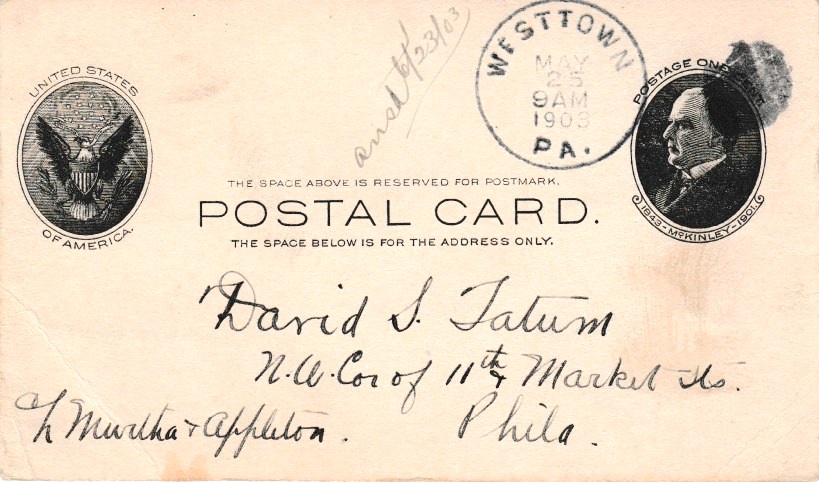 UNITED STATES
OF AMERICA.
ansd 5/23/03
WESTTOWN
MAY
25
9AM
1903
PA.
POSTAGE ONE CENT.
1843-McKINLEY-1901.
THE SPACE ABOVE IS RESERVED FOR POSTMARK.
POSTAL CARD.
THE SPACE BELOW IS FOR THE ADDRESS ONLY.
David S. Tatum
N.W. Cor of 11th & Market Sts.
Phila.
Murtha & Appleton.